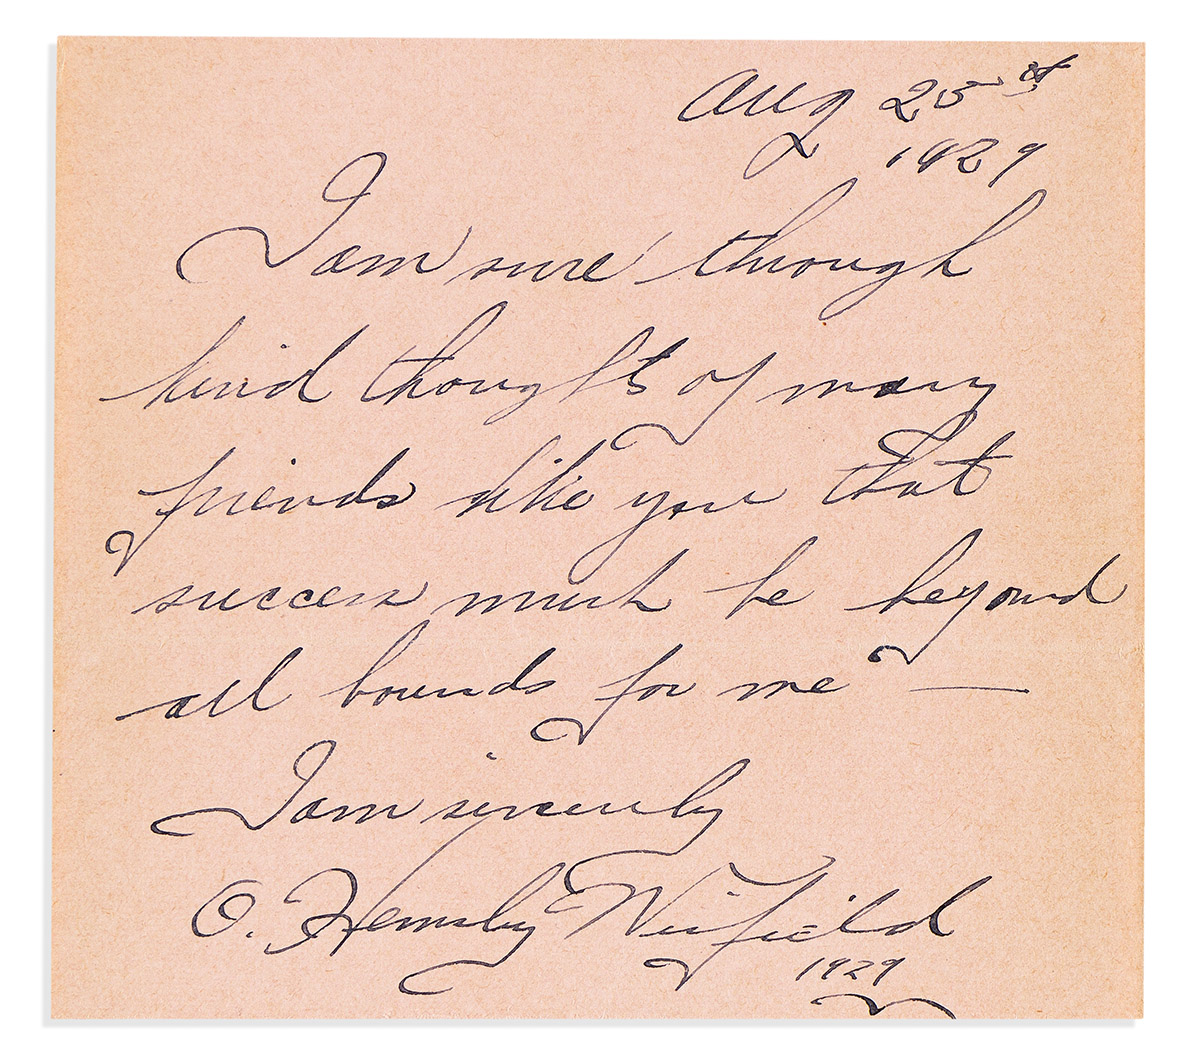 Aug 25st
1929
I am sure through
kind thoughts of many
friends like you that
success must be beyond
all bounds for me —
I am sincerely
O. Hemsley Winfield
1929